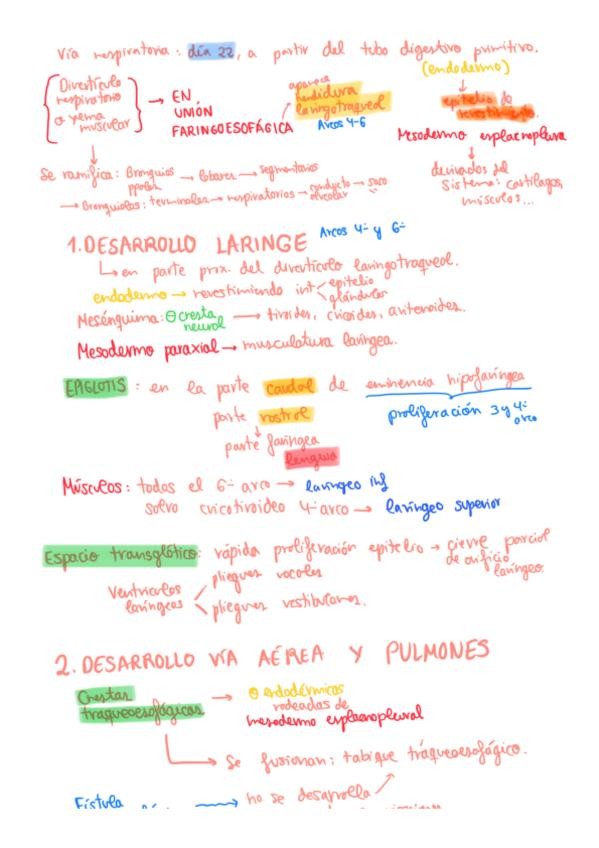 Vía respiratoria: día 22, a partir del tubo digestivo primitivo.
(endodermo)
Divertículo respiratorio o yema muscular → EN UNIÓN FARINGOESOFÁGICA
aparece hendidura laringotraqueal
Arcos 4-6
epitelio de revestimiento.
Mesodermo esplacnopleura
derivados del sistema: cartílagos, músculos...
Se ramifica: Bronquios ppales → lobares → segmentarios
→ Bronquiolos: terminales → respiratorios → conducto alveolar → saco
1. DESARROLLO LARINGE Arcos 4º y 6º
↳ en parte prox. del divertículo laringotraqueal.
endodermo → revestimiento int < epitelio
glándulas
Mesénquima: cresta neural → tiroides, cricoides, aritenoides.
Mesodermo paraxial → musculatura laríngea.
EPIGLOTIS: en la parte caudal de eminencia hipofaríngea
parte rostral
proliferación 3 y 4º arco
↓
parte faríngea
lengua
Músculos: todos el 6º arco → laríngeo inf
salvo cricotiroideo 4º arco → laríngeo superior
Espacio transglótico: rápida proliferación epitelio → cierre parcial de orificio laríngeo.
Ventrículos laríngeos < pliegues vocales
pliegues vestibulares.
2. DESARROLLO VÍA AÉREA Y PULMONES
Crestas traqueoesofágicas → endodérmicas
rodeadas de
mesodermo esplacnopleural
→ Se fusionan: tabique tráqueoesofágico.
Fístula → no se desarrolla